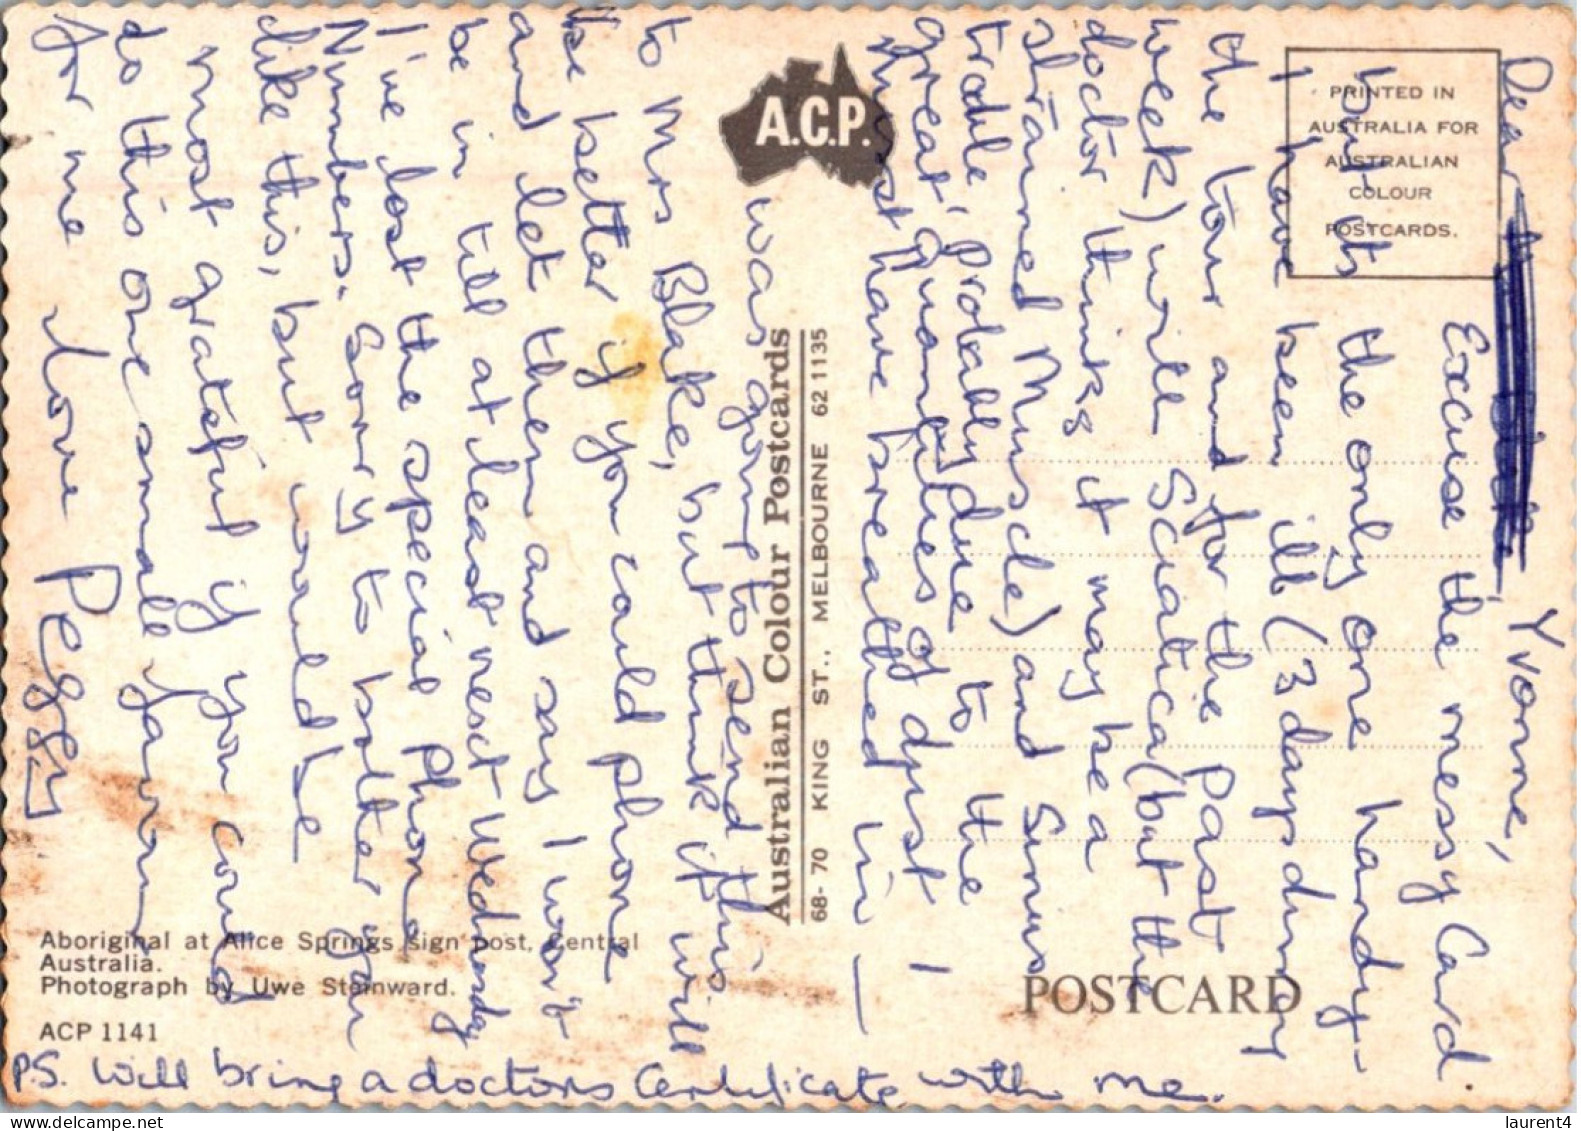 Dear Yvonne,
Excuse the messy Card.
but its the only one handy-
I have been ill (3 days during
the tour and for the past
week) with Sciatica (but the
doctor thinks it may be a
strained Muscle) and Sinus
trouble, Probably due to the
great quantities of dust I
must have breathed in —
was going to send this
to Mrs Blake, but think it will
be better if you could phone
and let them and say I won't
be in till at least next Wednesday
I've lost the special phone
Numbers. Sorry to bother you
like this, but would be
most grateful if you could
do this one small favour
for me love Peggy
P.S. Will bring a doctors Certificate with me.
PRINTED IN
AUSTRALIA FOR
AUSTRALIAN
COLOUR
POSTCARDS.
A.C.P.
Australian Colour Postcards
68-70 KING ST., MELBOURNE 62 1135
POSTCARD
Aboriginal at Alice Springs sign post, Central
Australia.
Photograph by Uwe Steinward.
ACP 1141
laurent4